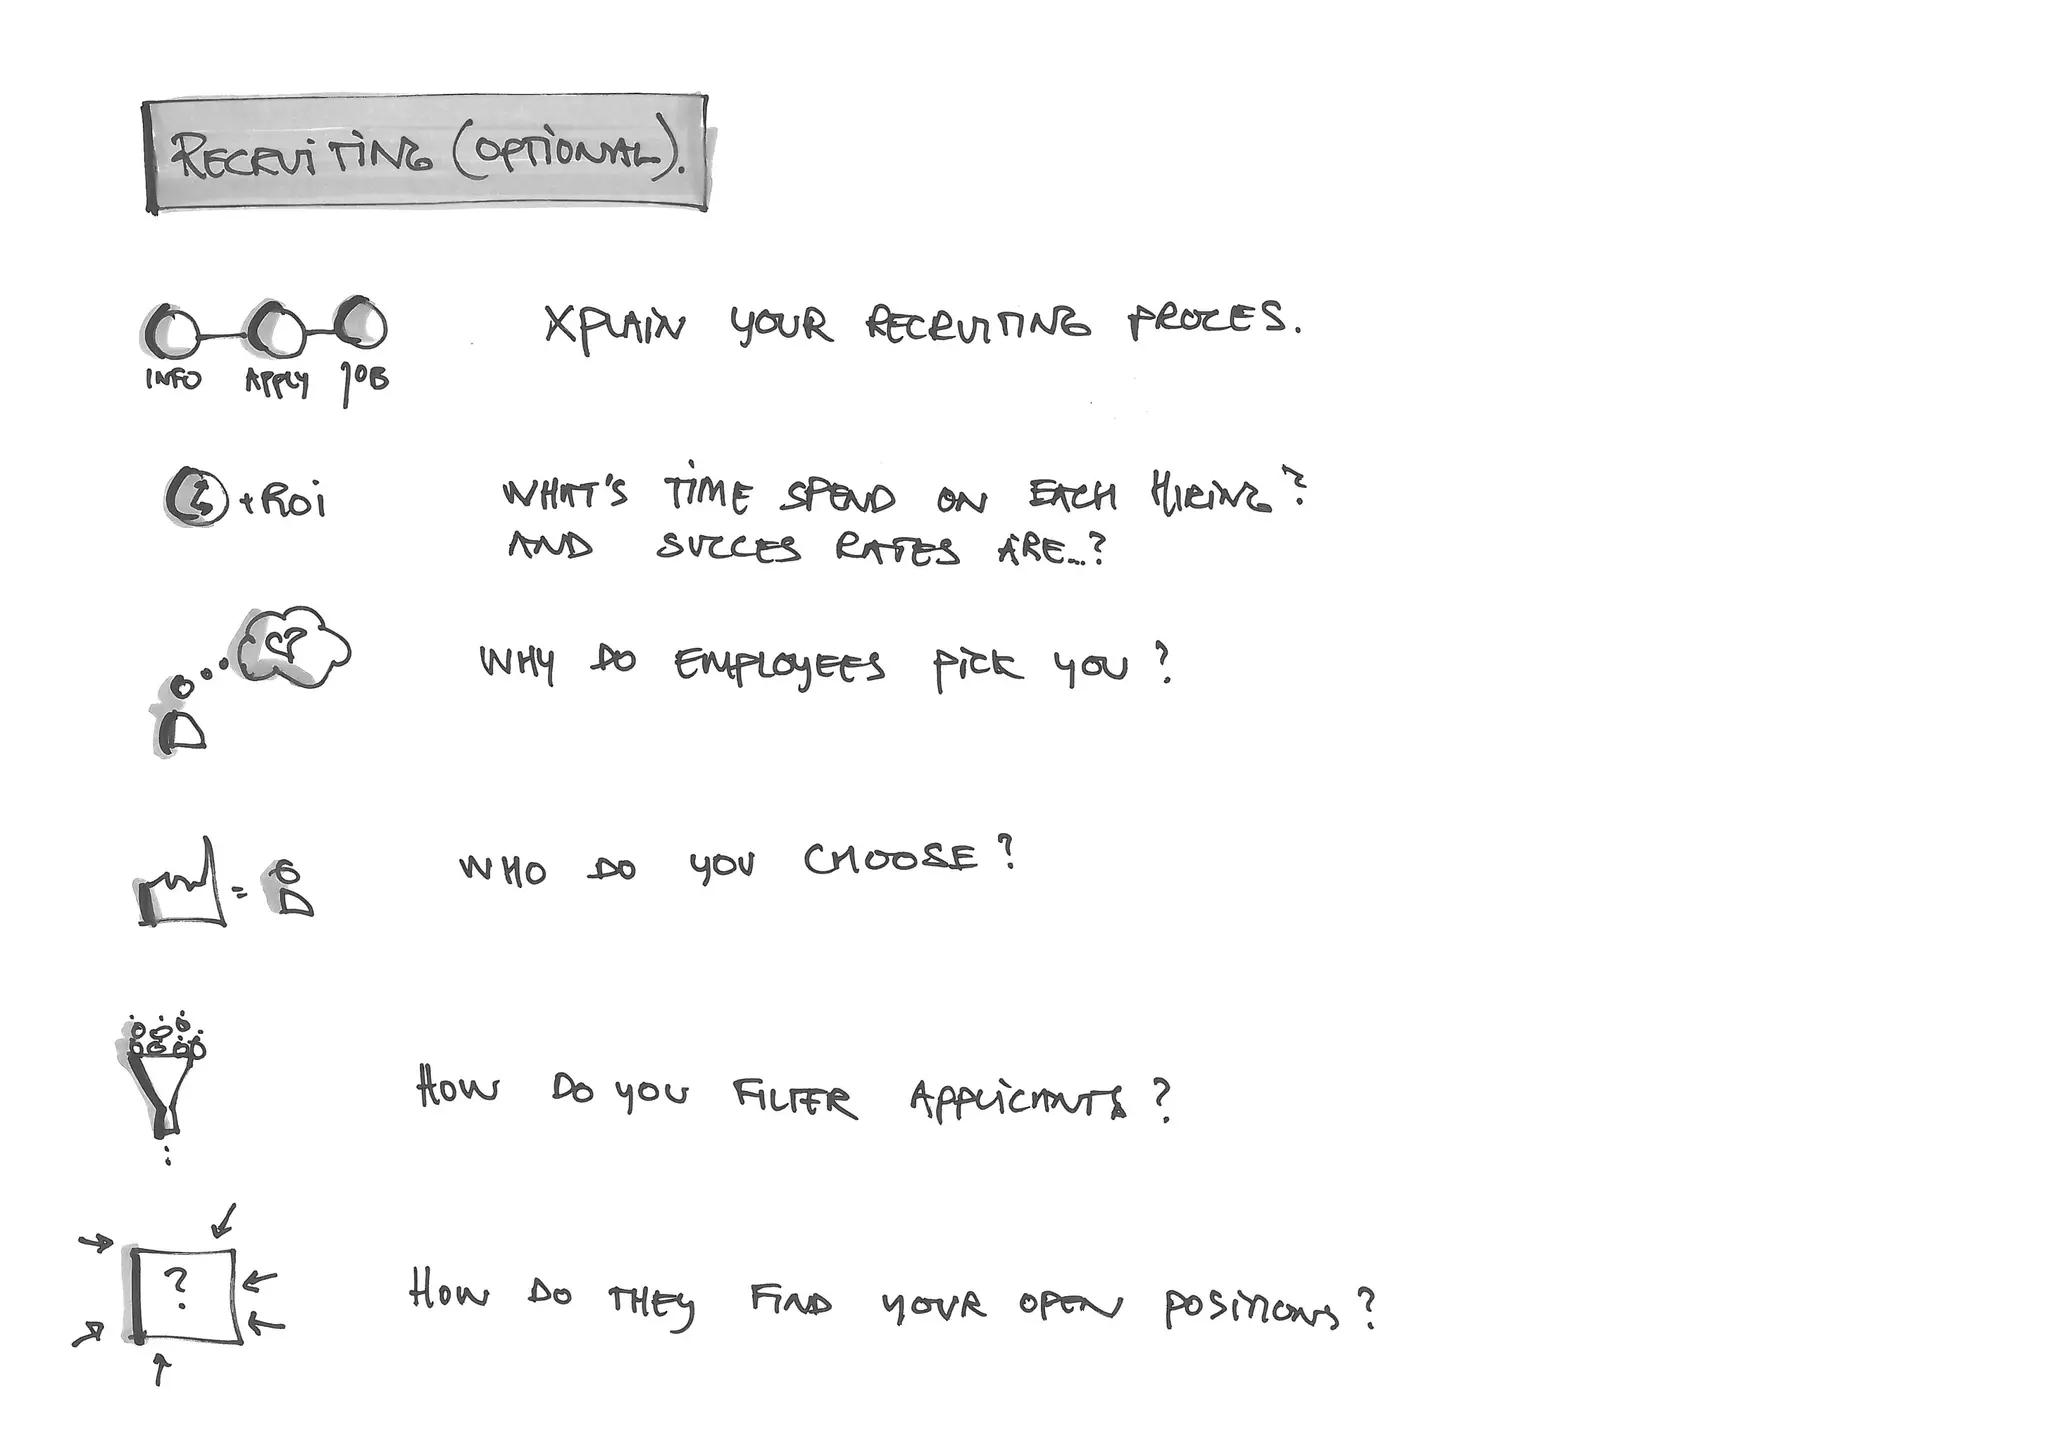 RECRUITING (OPTIONAL).
XPLAIN YOUR RECRUITING PROCES.
INFO APPLY JOB
+ ROI
WHAT'S TIME SPEND ON EACH HIRING?
AND SUCCES RATES ARE...?
WHY DO EMPLOYEES PICK YOU?
= WHO DO YOU CHOOSE?
HOW DO YOU FILTER APPLICANTS?
?
HOW DO THEY FIND YOUR OPEN POSITIONS?